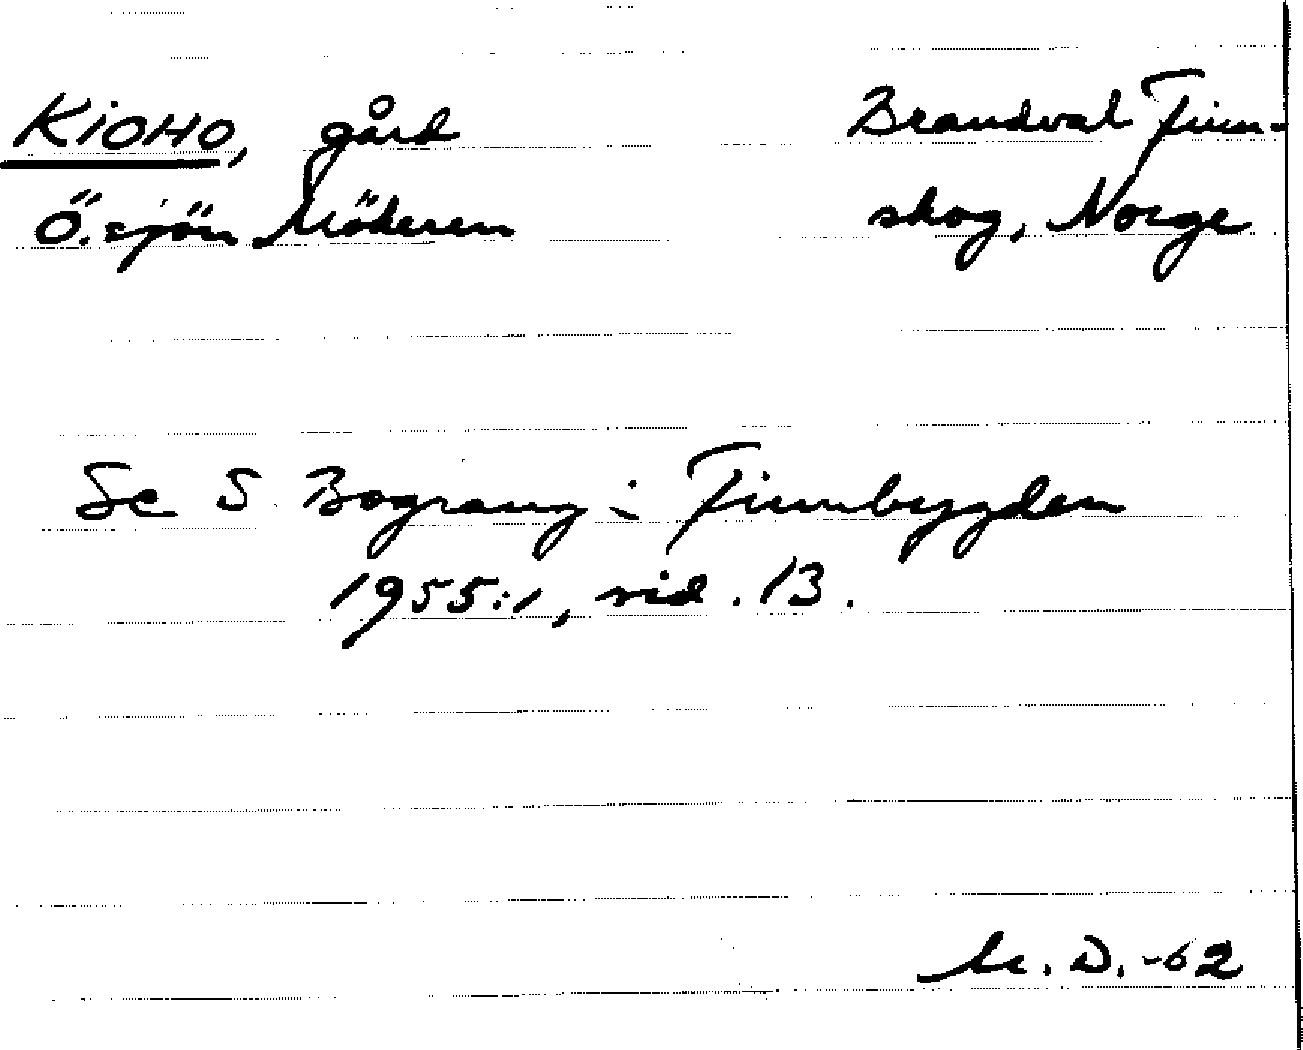 KIOHO, gård
Brandval Finn-
Ö. sjön Mökeren
skog, Norge
Se S Bograng: Finnbygden
1955:1, sid. 13.
M. D. -62